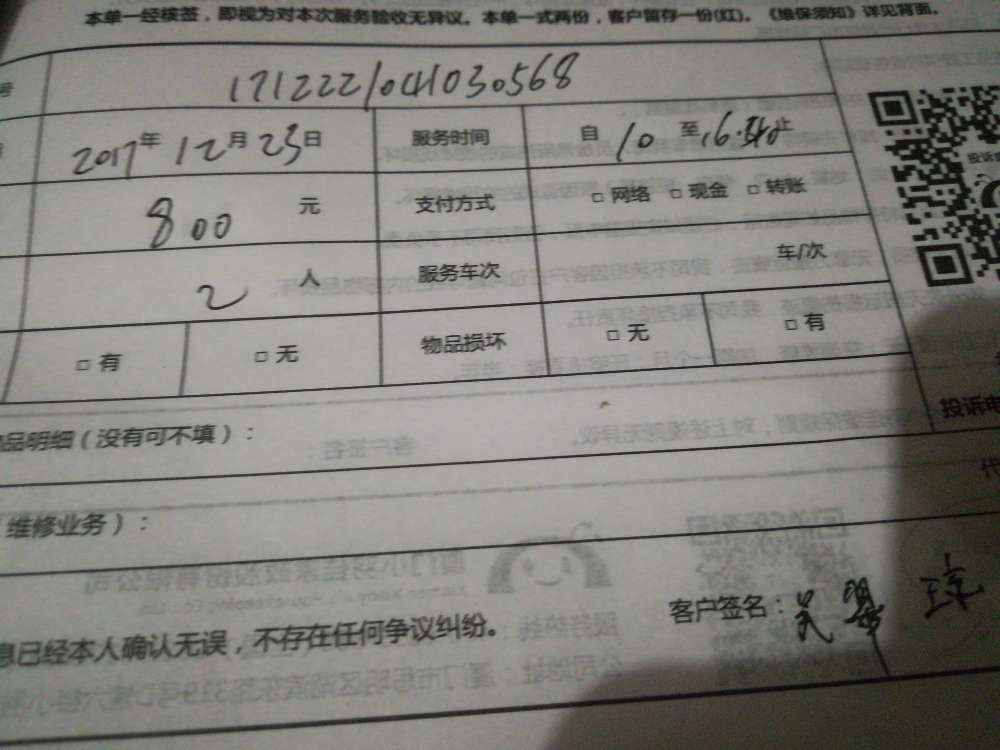 本单一经核签，即视为对本次服务验收无异议。本单一式两份，客户留存一份(红)。《维保须知》详见背面。
号 1712221041030568
2017年12月23日 服务时间 自10至16:40止
800元 支付方式 □ 网络 □ 现金 □ 转账
2人 服务车次 车/次
□ 有 □ 无 物品损坏 □ 无 □ 有
品明细（没有可不填）：
维修业务）：
息已经本人确认无误，不存在任何争议纠纷。
客户签名：吴翠琼
投诉
投诉电
代